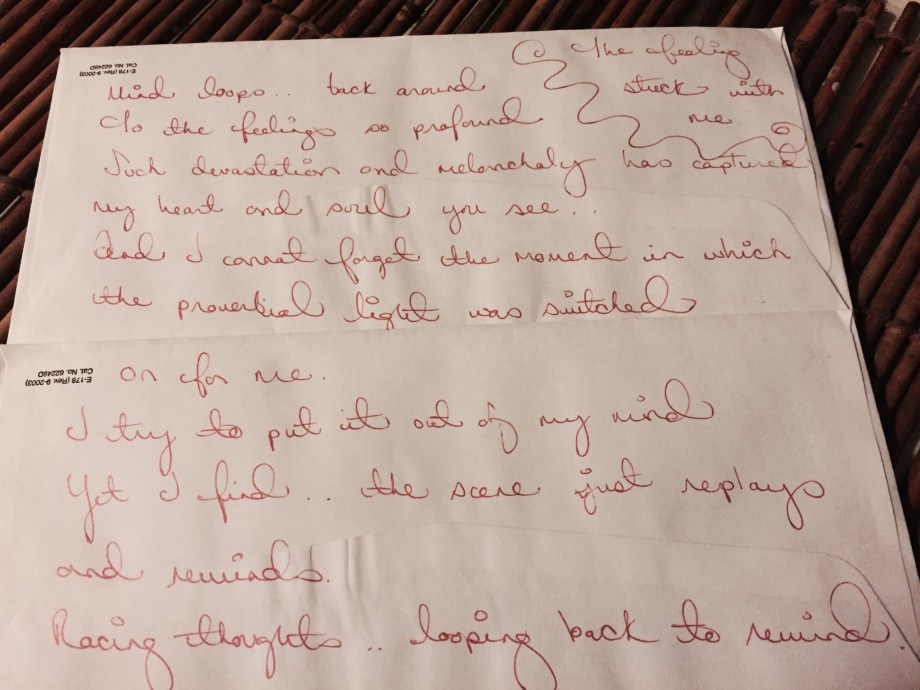 E-178 (Rev. 9-2003)
Cat. No. 62249D
The feeling
stuck with
me
Mind loops.. back around
To the feelings so profound
Such devastation and melancholy has captured
my heart and soul you see...
And I cannot forget the moment in which
the proverbial light was switched
E-178 (Rev. 9-2003)
Cat. No. 62249D
on for me.
I try to put it out of my mind
Yet I find.. the scene just replays
and reminds.
Racing thoughts.. looping back to remind